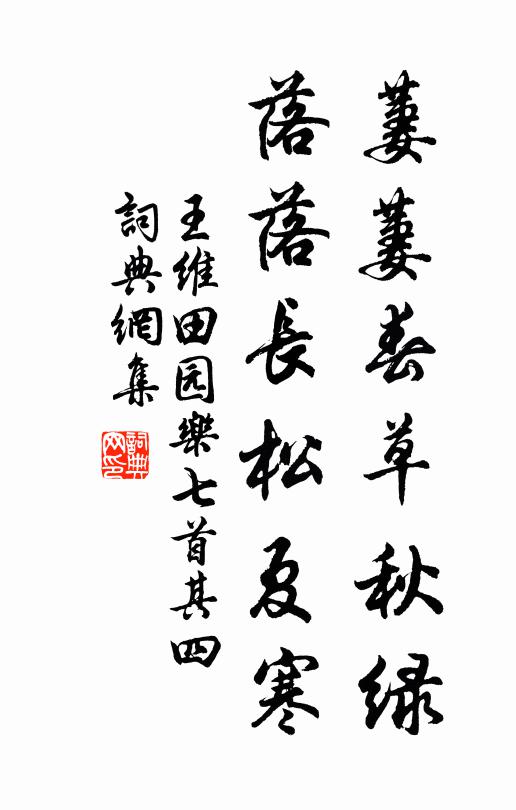 萋萋春草秋绿
落落長松夏寒
王維田园樂七首其四
詞典網集
詞典网印